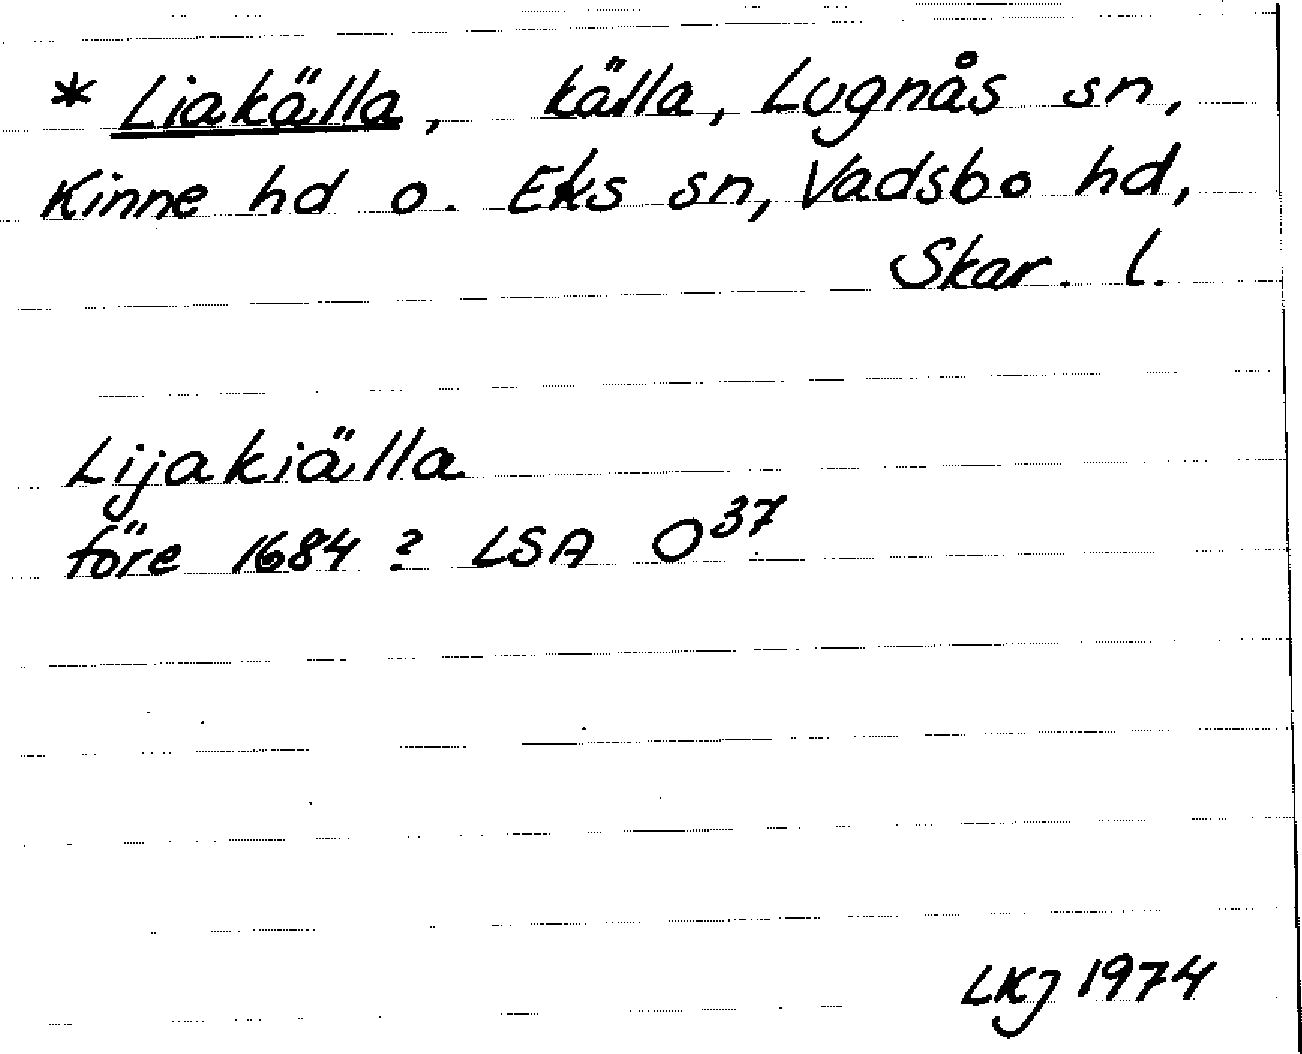 * Liakälla, källa, Lugnås sn,
Kinne hd o. Eks sn, Vadsbo hd,
Skar. l.
Lijakiälla
före 1684 ? LSA O37
LKJ 1974